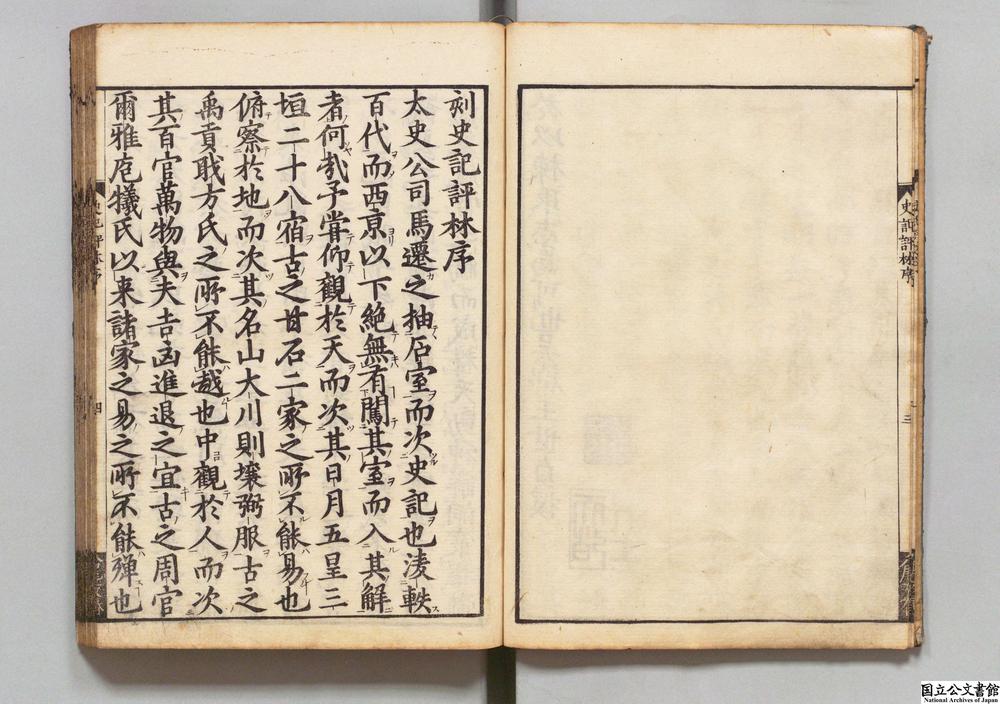 史記評林序
三
刻史記評林序
太史公司馬遷之抽石室而次史記也淩軼
百代而西京以下絶無有闖其室而入其解
者何㢤予甞仰觀於天而次其日月五星三
垣二十八宿古之甘石二家之所不能易也
俯察於地而次其名山大川則壤弼服古之
禹貢職方氏之所不能越也中觀於人而次
其百官萬物與夫吉凶進退之宜古之周官
爾雅庖犧氏以来諸家之易之所不能殫也
四
国立公文書館
National Archives of Japan